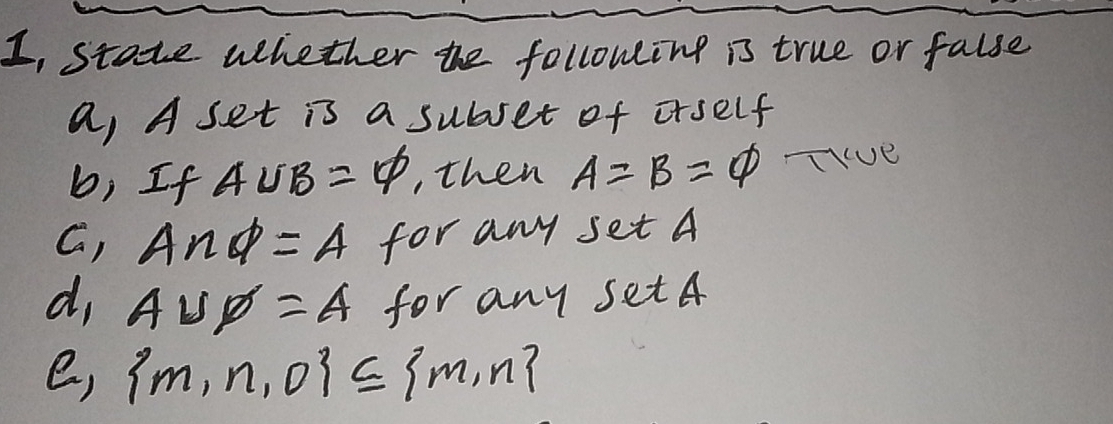 1, State whether the following is true or false
a, A set is a subset of itself
b, If A∪B = ϕ, then A = B = ϕ True
C, A∩ϕ = A for any set A
d, A∪ø = A for any set A
e, {m, n, o} ⊆ {m, n}